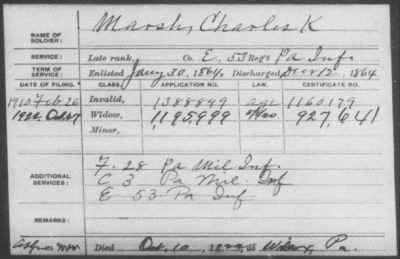 NAME OF SOLDIER: Marsh, Charles K
SERVICE: Late rank, Co. E, 53 Reg't Pa Inf.
TERM OF SERVICE: Enlisted Jany 30, 1864, Discharged 12, 1864
DATE OF FILING. CLASS. APPLICATION NO. LAW. CERTIFICATE NO.
1910 Feb 26 Invalid, 1388849 age 1160179
Widow, 1195,999 927,641
Minor,
ADDITIONAL SERVICES: F. 28 Pa Mil Inf.
C 3 Pa Mil. Inf
E 53 Pa Inf
REMARKS:
Died Oct. 10, at Pa.